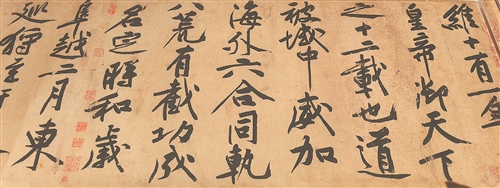 維十有一
皇帝御天下
之十二載也道
被域中威加
海外六合同軌
八荒有截功成
名定時和歲
阜越二月東
巡狩至于